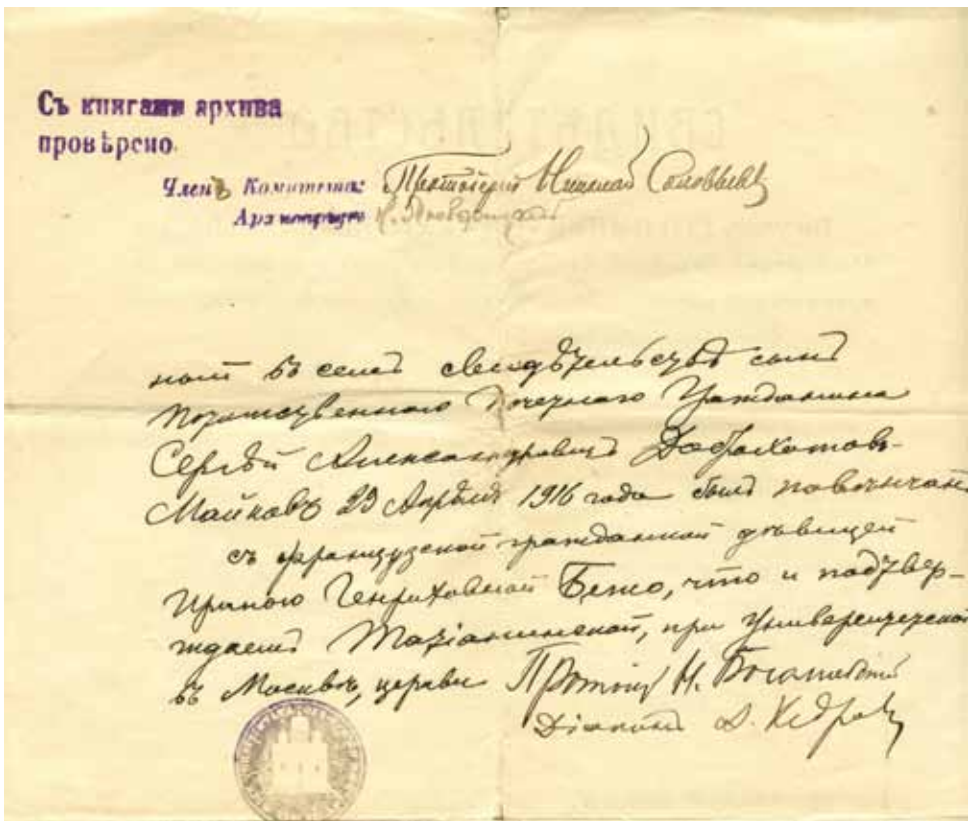 Съ книгами архива
провѣрено.
Членъ Комитета: Протоіерей Николай Соловьевъ
ной въ семъ свидѣтельствѣ сынъ
Потомственнаго Почетнаго Гражданина
Сергѣй Александровичъ Доброхотовъ-
Майковъ 29 Апрѣля 1916 года былъ повѣнчанъ
съ французской гражданкой дѣвицей
Ириною Генриховной Бемо, что и подтвер-
ждаемъ Татіанинской, при Университетской
въ Москвѣ, церкви Протоіер Н. Боголюбскій
Діаконъ